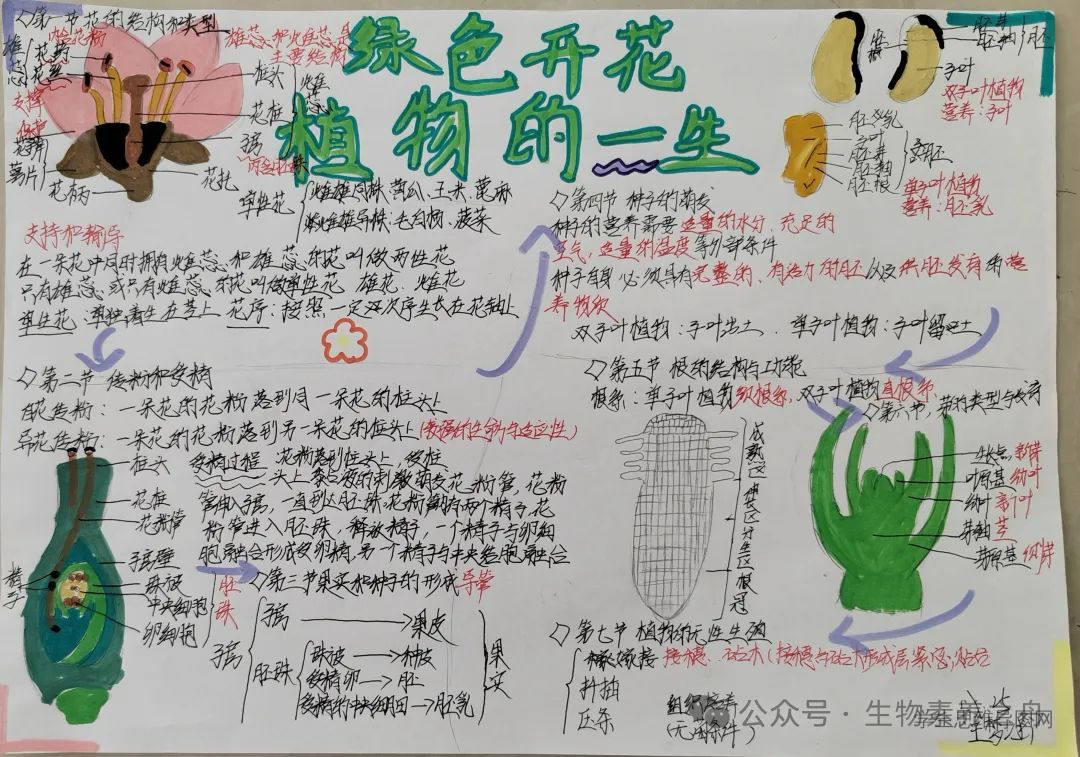 绿色开花
植物的一生
◇第一节花的结构和类型
雄蕊和雌蕊是
主要结构
花药
花丝
雄蕊
支撑
柱头
花柱
子房
雌蕊
萼片
花柄
花托
单性花
雌雄同株 黄瓜、玉米、蓖麻
雌雄异株 毛白杨、菠菜
支持和输导
在一朵花中同时拥有雄蕊和雌蕊的花叫做两性花
只有雄蕊或只有雌蕊的花叫做单性花 雄花、雌花
单生花:单独着生在茎上 花序:按照一定次序生长在花轴上
◇第二节 传粉和受精
自花传粉:一朵花的花粉落到同一朵花的柱头上
异花传粉:一朵花的花粉落到另一朵花的柱头上
受精过程 花粉落到柱头上 受柱
头上黏液的刺激萌发花粉管,花粉
管伸入子房,一直到达胚珠,花粉管内有两个精子,花
粉管进入胚珠,释放精子,一个精子与卵细
胞融合形成受精卵,另一个精子与中央细胞融合
柱头
花柱
花粉管
子房壁
珠被
中央细胞
卵细胞
胚珠
精子
◇第三节果实和种子的形成
子房
子房→果皮
胚珠
珠被→种皮
受精卵→胚
受精的中央细胞→胚乳
果实
胚芽
胚轴
胚根
胚
子叶
双子叶植物
营养:子叶
胚乳
子叶
胚芽
胚轴
胚根
单子叶植物
营养:胚乳
◇第四节 种子的萌发
种子的营养需要适量的水分、充足的
空气,适量的温度等外部条件
种子自身必须具有完整的、有活力的胚以及供胚发育的营
养物质
双子叶植物:子叶出土 单子叶植物:子叶留土
◇第五节 根的结构与功能
根系:单子叶植物须根系,双子叶植物直根系
成熟区
伸长区
分生区
根冠
◇第六节,芽的类型与发育
生长点
叶原基 幼叶
幼叶
芽轴 茎
芽原基
◇第七节 植物的无性生殖
嫁接 接穗、砧木(接穗与砧木形成层紧密贴合
扦插
压条
组织培养
(无菌条件)
公众号·生物素养之舟